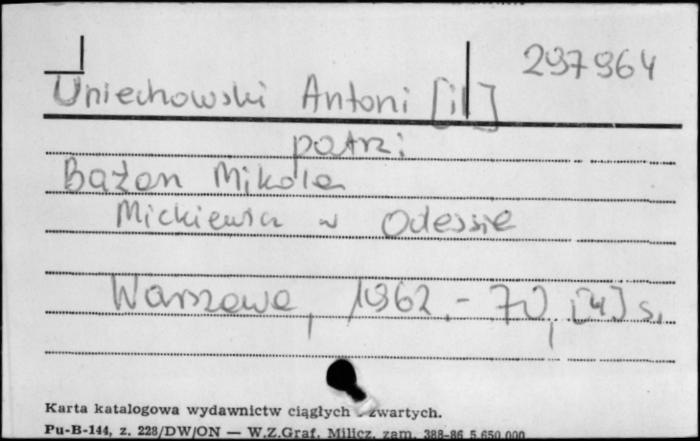 297964
Uniechowski Antoni [il]
patrz:
Bażan Mikola
Mickiewicz w Odessie
Warszawa, 1962.- 70, [4] s.
Karta katalogowa wydawnictw ciągłych zwartych.
Pu-B-144, z. 228/DW/ON — W.Z.Graf. Milicz, zam. 388-86 5.650.000